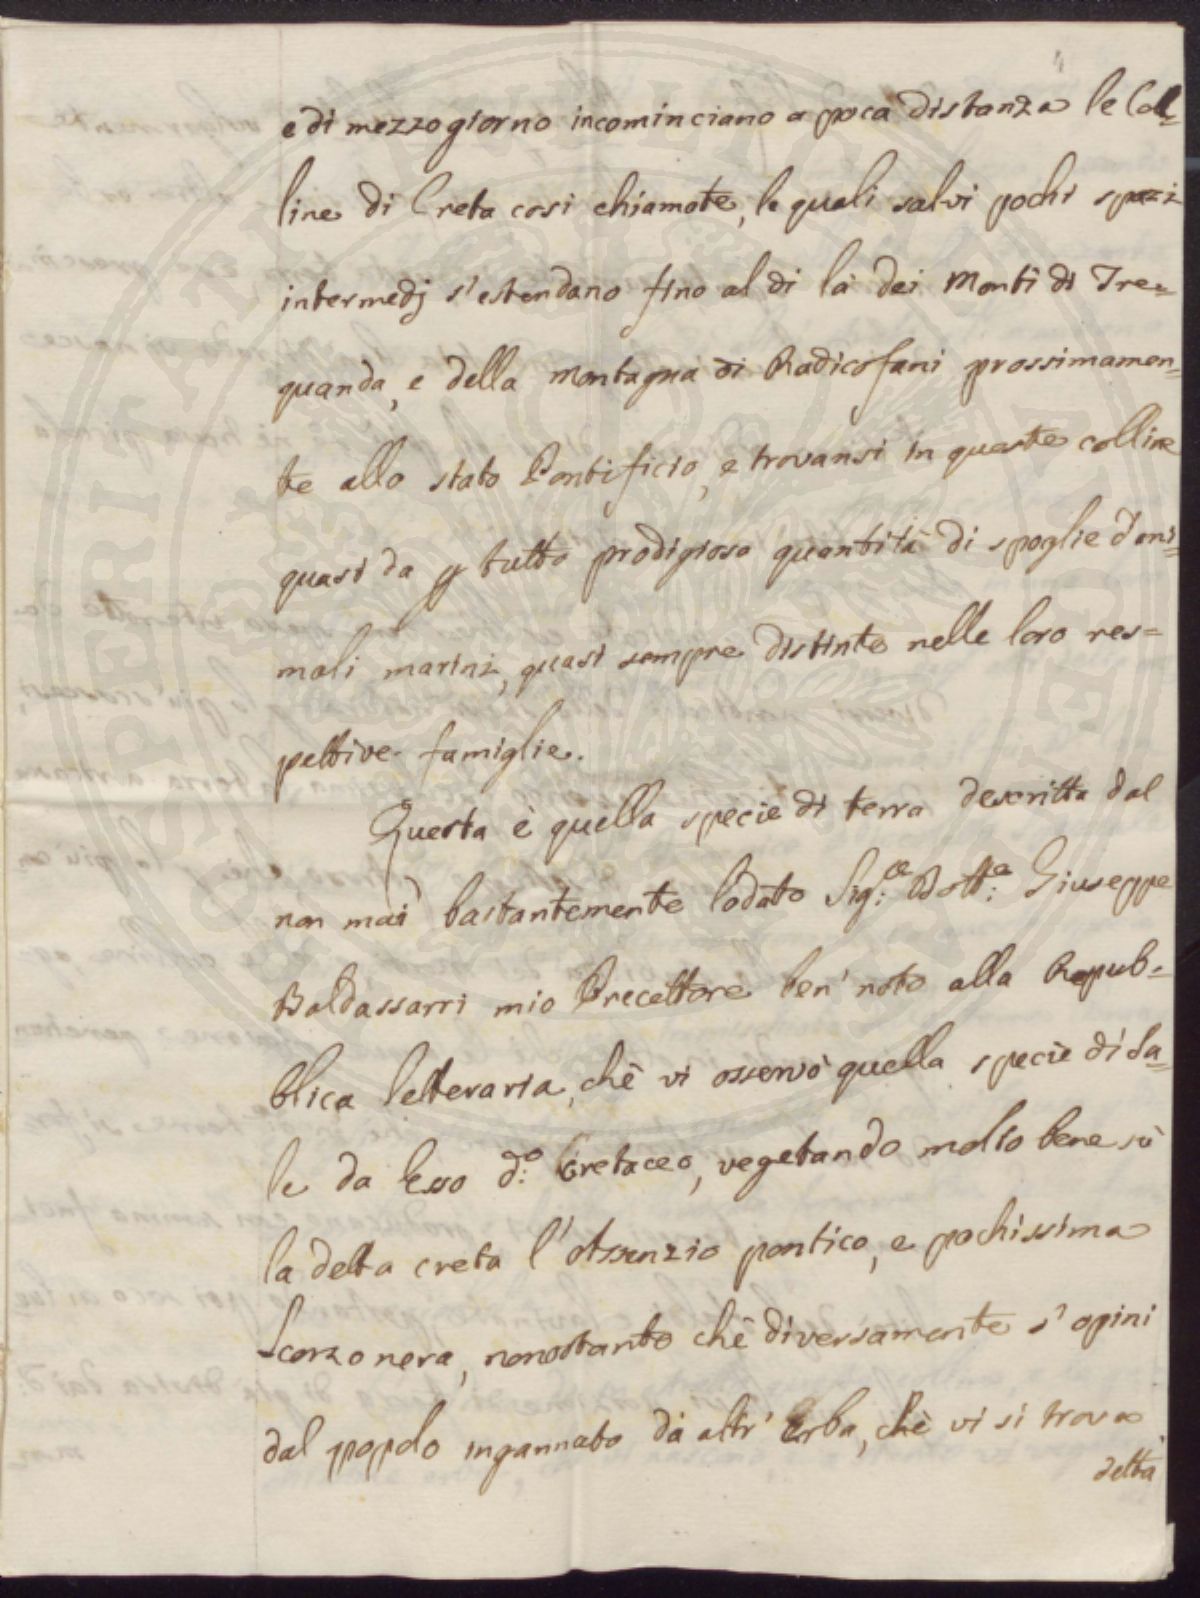 e di mezzogiorno incominciano a poca distanza le Col=
line di Creta così chiamate, le quali salvi pochi spazi
intermedj s'estendano fino al di là dei Monti di Tre=
quanda, e della montagna di Radicofani prossimamen=
te allo stato Pontificio, e trovansi in queste colline
quasi da p tutto prodigiosa quantità di spoglie d'ani=
mali marini, quasi sempre distinte nelle loro res=
pettive famiglie.
Questa è quella specie di terra descritta dal
non mai bastantemente lodato Sig:re Dott:e Giuseppe
Baldassarri mio Precettore ben' noto alla Repub=
blica letteraria, chè vi osservò quella specie di Sa=
le da Esso d:o Cretaceo, vegetando molto bene sù
la detta creta l'Assenzio pontico, e pochissima
Scorzonera, nonostante chè diversamente s'opini
dal popolo ingannato da altr' Erba, chè vi si trova
detta
PROSPERITATI PVBLICAE AVGENDAE